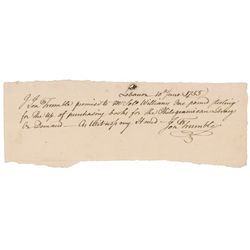 Lebanon 10th June 1753
I Jon Trumble promise to Mr Sol Williams One pound sterling
for the use of purchasing books for the Philogrammatican Library
on Demand — As Witness my Hand — Jon Trumble